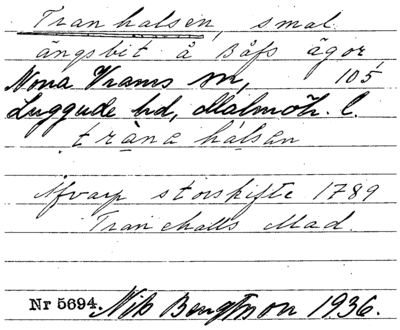 Tranhalsen, smal
ängsbit å Båfs ägor,
Norra Vrams sn, 105
Luggude hd, Malmöh. l.
trana halsen
Afvarp storskifte 1789
Tranehalls Mad.
Nr 5694. Nils Bengtsson 1936.